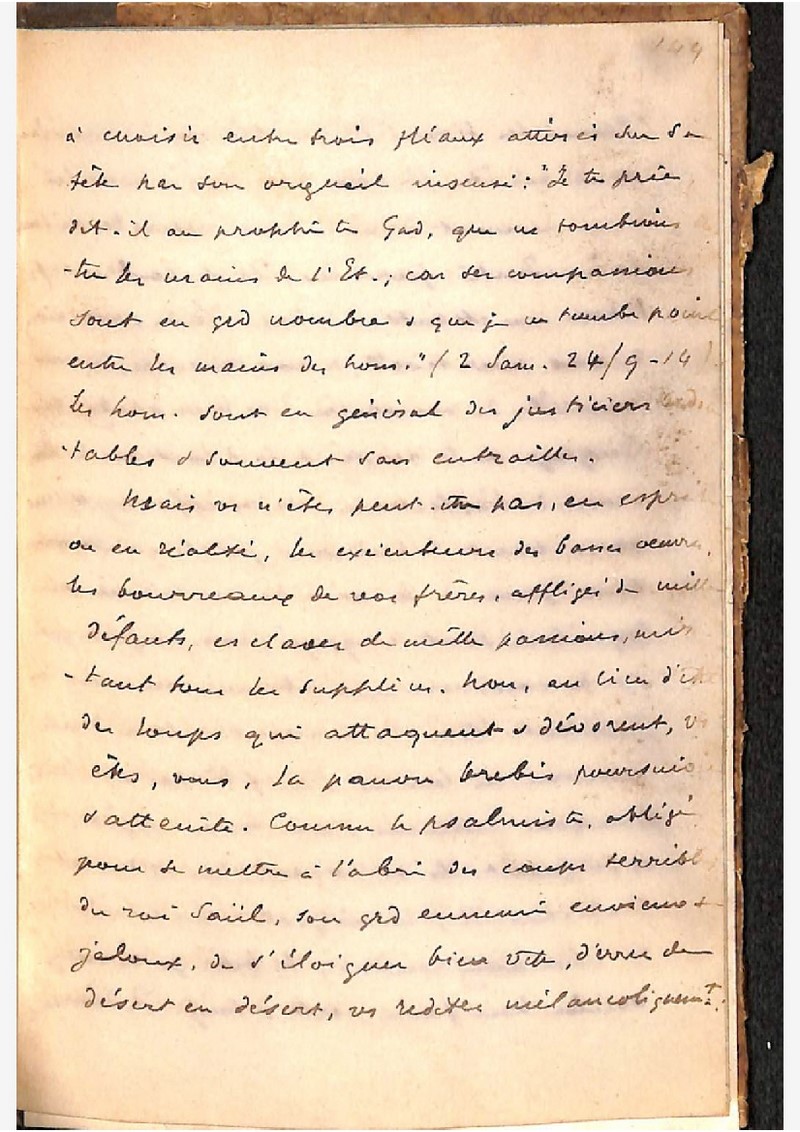 144
à choisir entre trois fléaux attirés sur sa
tête par son orgueil insensé : "Je te prie
dit-il au prophète Gad, que ne tombions
-tre les mains de l'Et. ; car ses compassions
sont en grd nombre & que je ne tombe point
entre les mains des hom." (2 Sam. 24/9-14).
Les hom. sont en général des justiciers
-tables & souvent sans entrailles.
Mais vs n'êtes peut-être pas, en esprit
ou en réalité, les exécuteurs des basses oeuvres,
les bourreaux de vos frères, affligés de mille
défauts, esclaves de mille passions, mé
-tant tous les supplices. Non, au lieu d'être
des loups qui attaquent & dévorent, vs
êtes, vous, la pauvre brebis poursuivie
& atteinte. Comme le psalmiste, obligé
pour se mettre à l'abri des coups terribles
du roi Saül, son grd ennemi envieux &
jaloux, de s'éloigner bien vite, d'errer de
désert en désert, vs redites mélancoliquemt :